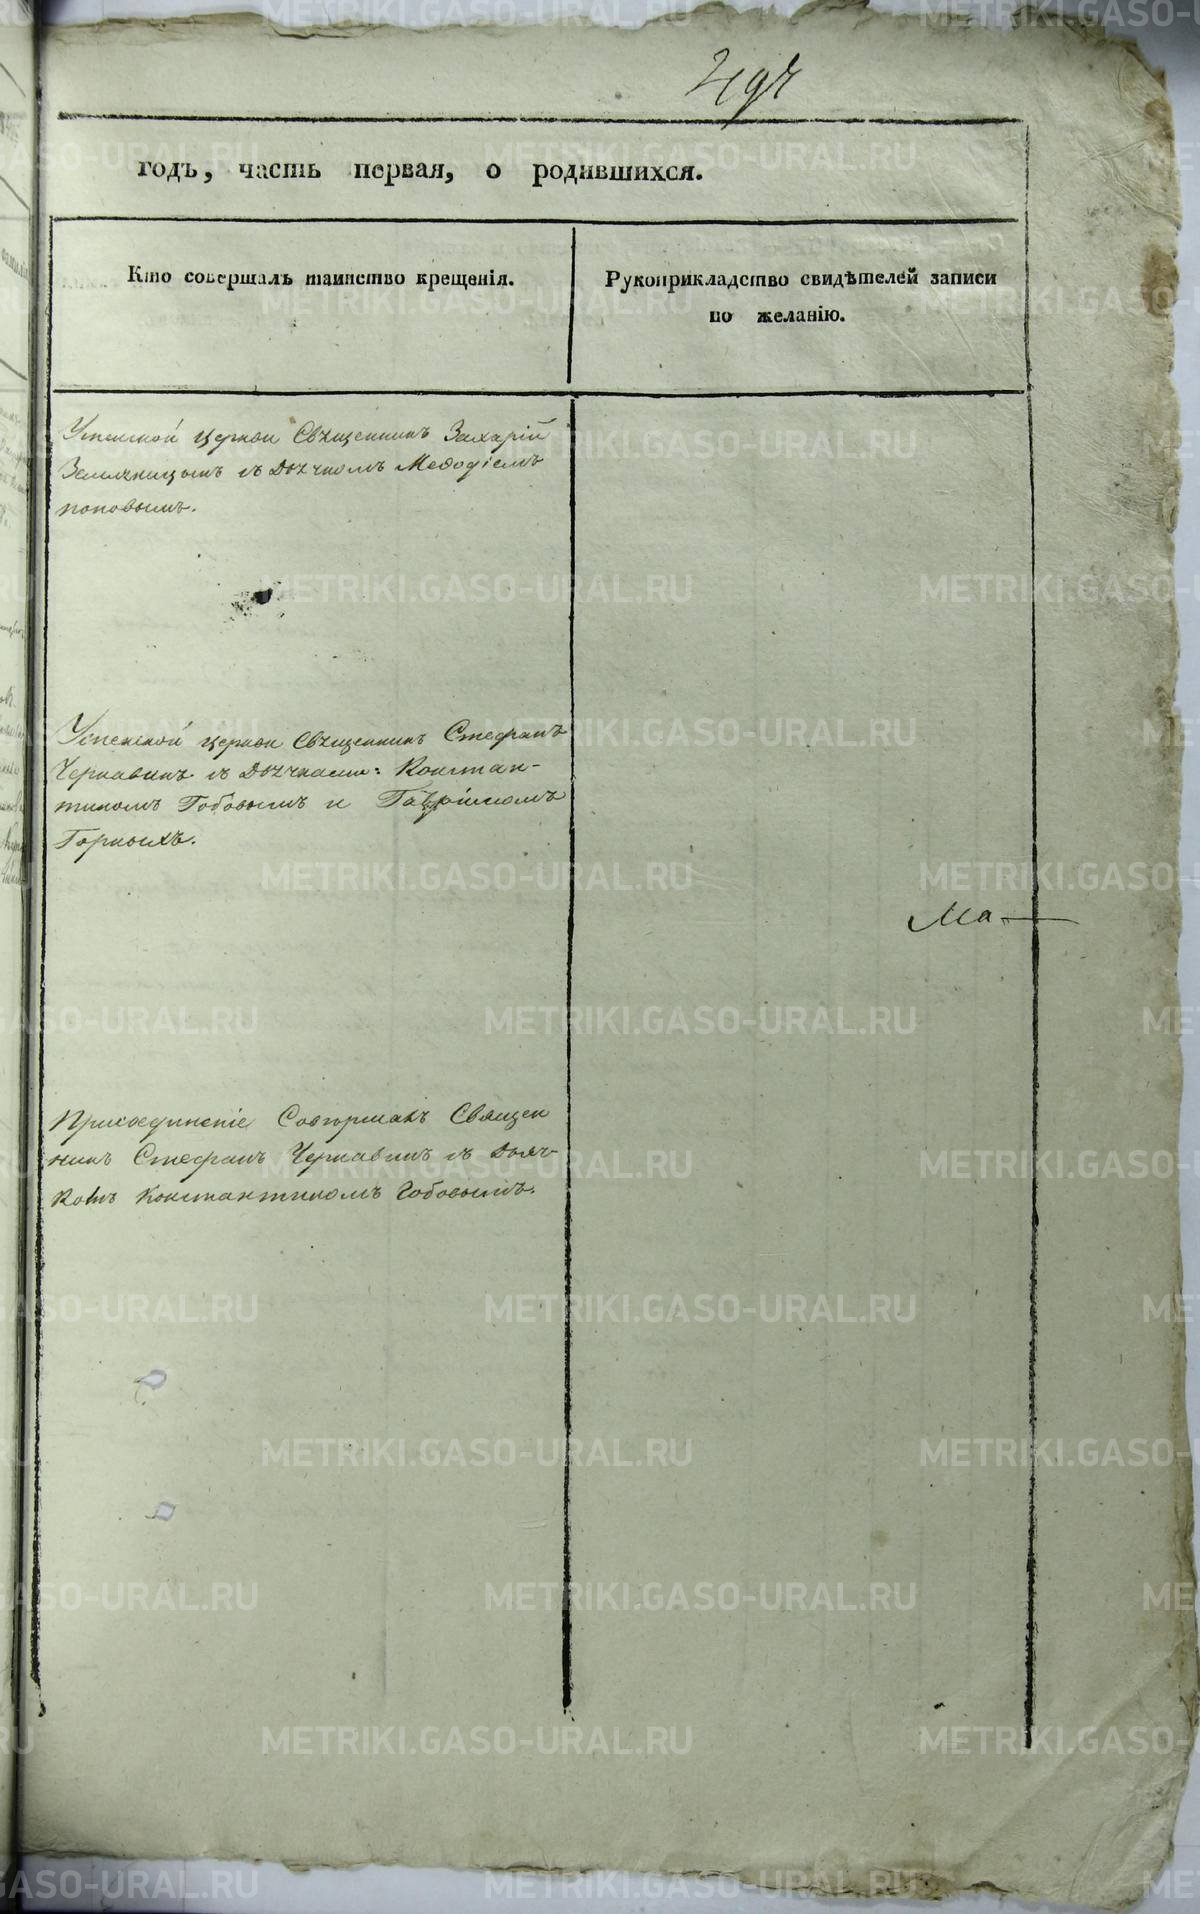 годъ, часть первая, о родившихся.
Кто совершалъ таинство крещенія.
Рукоприкладство свидѣтелей записи
по желанію.
Успенской церкви Священникъ Захарій
Земляницынъ съ Дьячкомъ Меѳодіемъ
поповымъ.
Успенской церкви Священникъ Стефанъ
Чернавинъ съ Дьячками: Констан-
тиномъ Гобовымъ и Гавріиломъ
Горныхъ.
Ма
Присоединеніе Совершалъ Священ
никъ Стефанъ Чернавинъ съ Дьяч-
комъ Константиномъ Гобовымъ.
METRIKI.GASO-URAL.RU